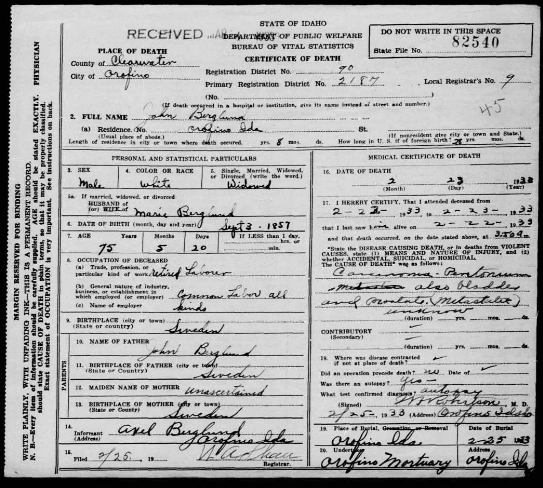 STATE OF IDAHO
RECEIVED
DEPARTMENT OF PUBLIC WELFARE
BUREAU OF VITAL STATISTICS
CERTIFICATE OF DEATH
DO NOT WRITE IN THIS SPACE
State File No. 82540
PLACE OF DEATH
County of Clearwater
City of Orofino
Registration District No. 90
Primary Registration District No. 2187
Local Registrar's No. 9
(No.
(If death occurred in a hospital or institution, give its name instead of street and number.)
45
2. FULL NAME John Berglund
(a) Residence. (No. Orofino Ida St.
(Usual place of abode.) (If nonresident give city or town and State)
Length of residence in city or town where death occurred yrs. 8 mos. ds. How long in U.S. if of foreign birth? yrs. mos. ds.
PERSONAL AND STATISTICAL PARTICULARS
3. SEX Male
4. COLOR OR RACE White
5. Single, Married, Widowed, or Divorced (write the word.) Widowed
5a. If married, widowed, or divorced
HUSBAND of
(or) WIFE of Marie Berglund
6. DATE OF BIRTH (month, day and year) Sept 3 1857
7. AGE 75 Years 5 Months 20 Days If LESS than 1 day, hrs. or min.
8. OCCUPATION OF DECEASED
(a) Trade, profession, or particular kind of work Retired Laborer
(b) General nature of industry, business, or establishment in which employed (or employer) Common Labor all
(c) Name of employer kinds
9. BIRTHPLACE (city or town)
(State or country) Sweden
PARENTS
10. NAME OF FATHER John Berglund
11. BIRTHPLACE OF FATHER (city or town)
(State or Country) Sweden
12. MAIDEN NAME OF MOTHER unascertained
13. BIRTHPLACE OF MOTHER (city or town)
(State or country) Sweden
14. Informant Axel Berglund
(Address) Orofino Ida
15. Filed 2/25 19
Registrar.
MEDICAL CERTIFICATE OF DEATH
16. DATE OF DEATH 2 23 1933
(Month) (Day) (Year)
17. I HEREBY CERTIFY, That I attended deceased from
1933 to 2-23- 1933
that I last saw alive on 1933
and that death occurred, on the date stated above, at
State the DISEASE CAUSING DEATH, or in deaths from VIOLENT
CAUSES, state (1) MEANS AND NATURE OF INJURY, and (2)
whether ACCIDENTAL, SUICIDAL, or HOMICIDAL.
The CAUSE OF DEATH* was as follows:
Carcinoma - Peritoneum
also bladder
and prostate (Metastatic)
unknown
(duration) yrs. mos. ds.
CONTRIBUTORY
(Secondary)
(duration) yrs. mos. ds.
18. Where was disease contracted
if not at place of death?
Did an operation precede death? no Date of
Was there an autopsy? Yes
What test confirmed diagnosis? autopsy
(Signed) M. D.
2/25 1933 (Address) Orofino Idaho
19. Place of Burial, Cremation or Removal Date of Burial
Orofino Ida 2-25 1933
20. Undertaker Address
Orofino Mortuary Orofino Ida
MARGIN RESERVED FOR BINDING
WRITE PLAINLY, WITH UNFADING INK—THIS IS A PERMANENT RECORD.
N. B.—Every item of information should be carefully supplied. AGE should be stated EXACTLY. PHYSICIAN
should state CAUSE OF DEATH in plain terms, so that it may be properly classified.
Exact statement of OCCUPATION is very important. See instructions on back.